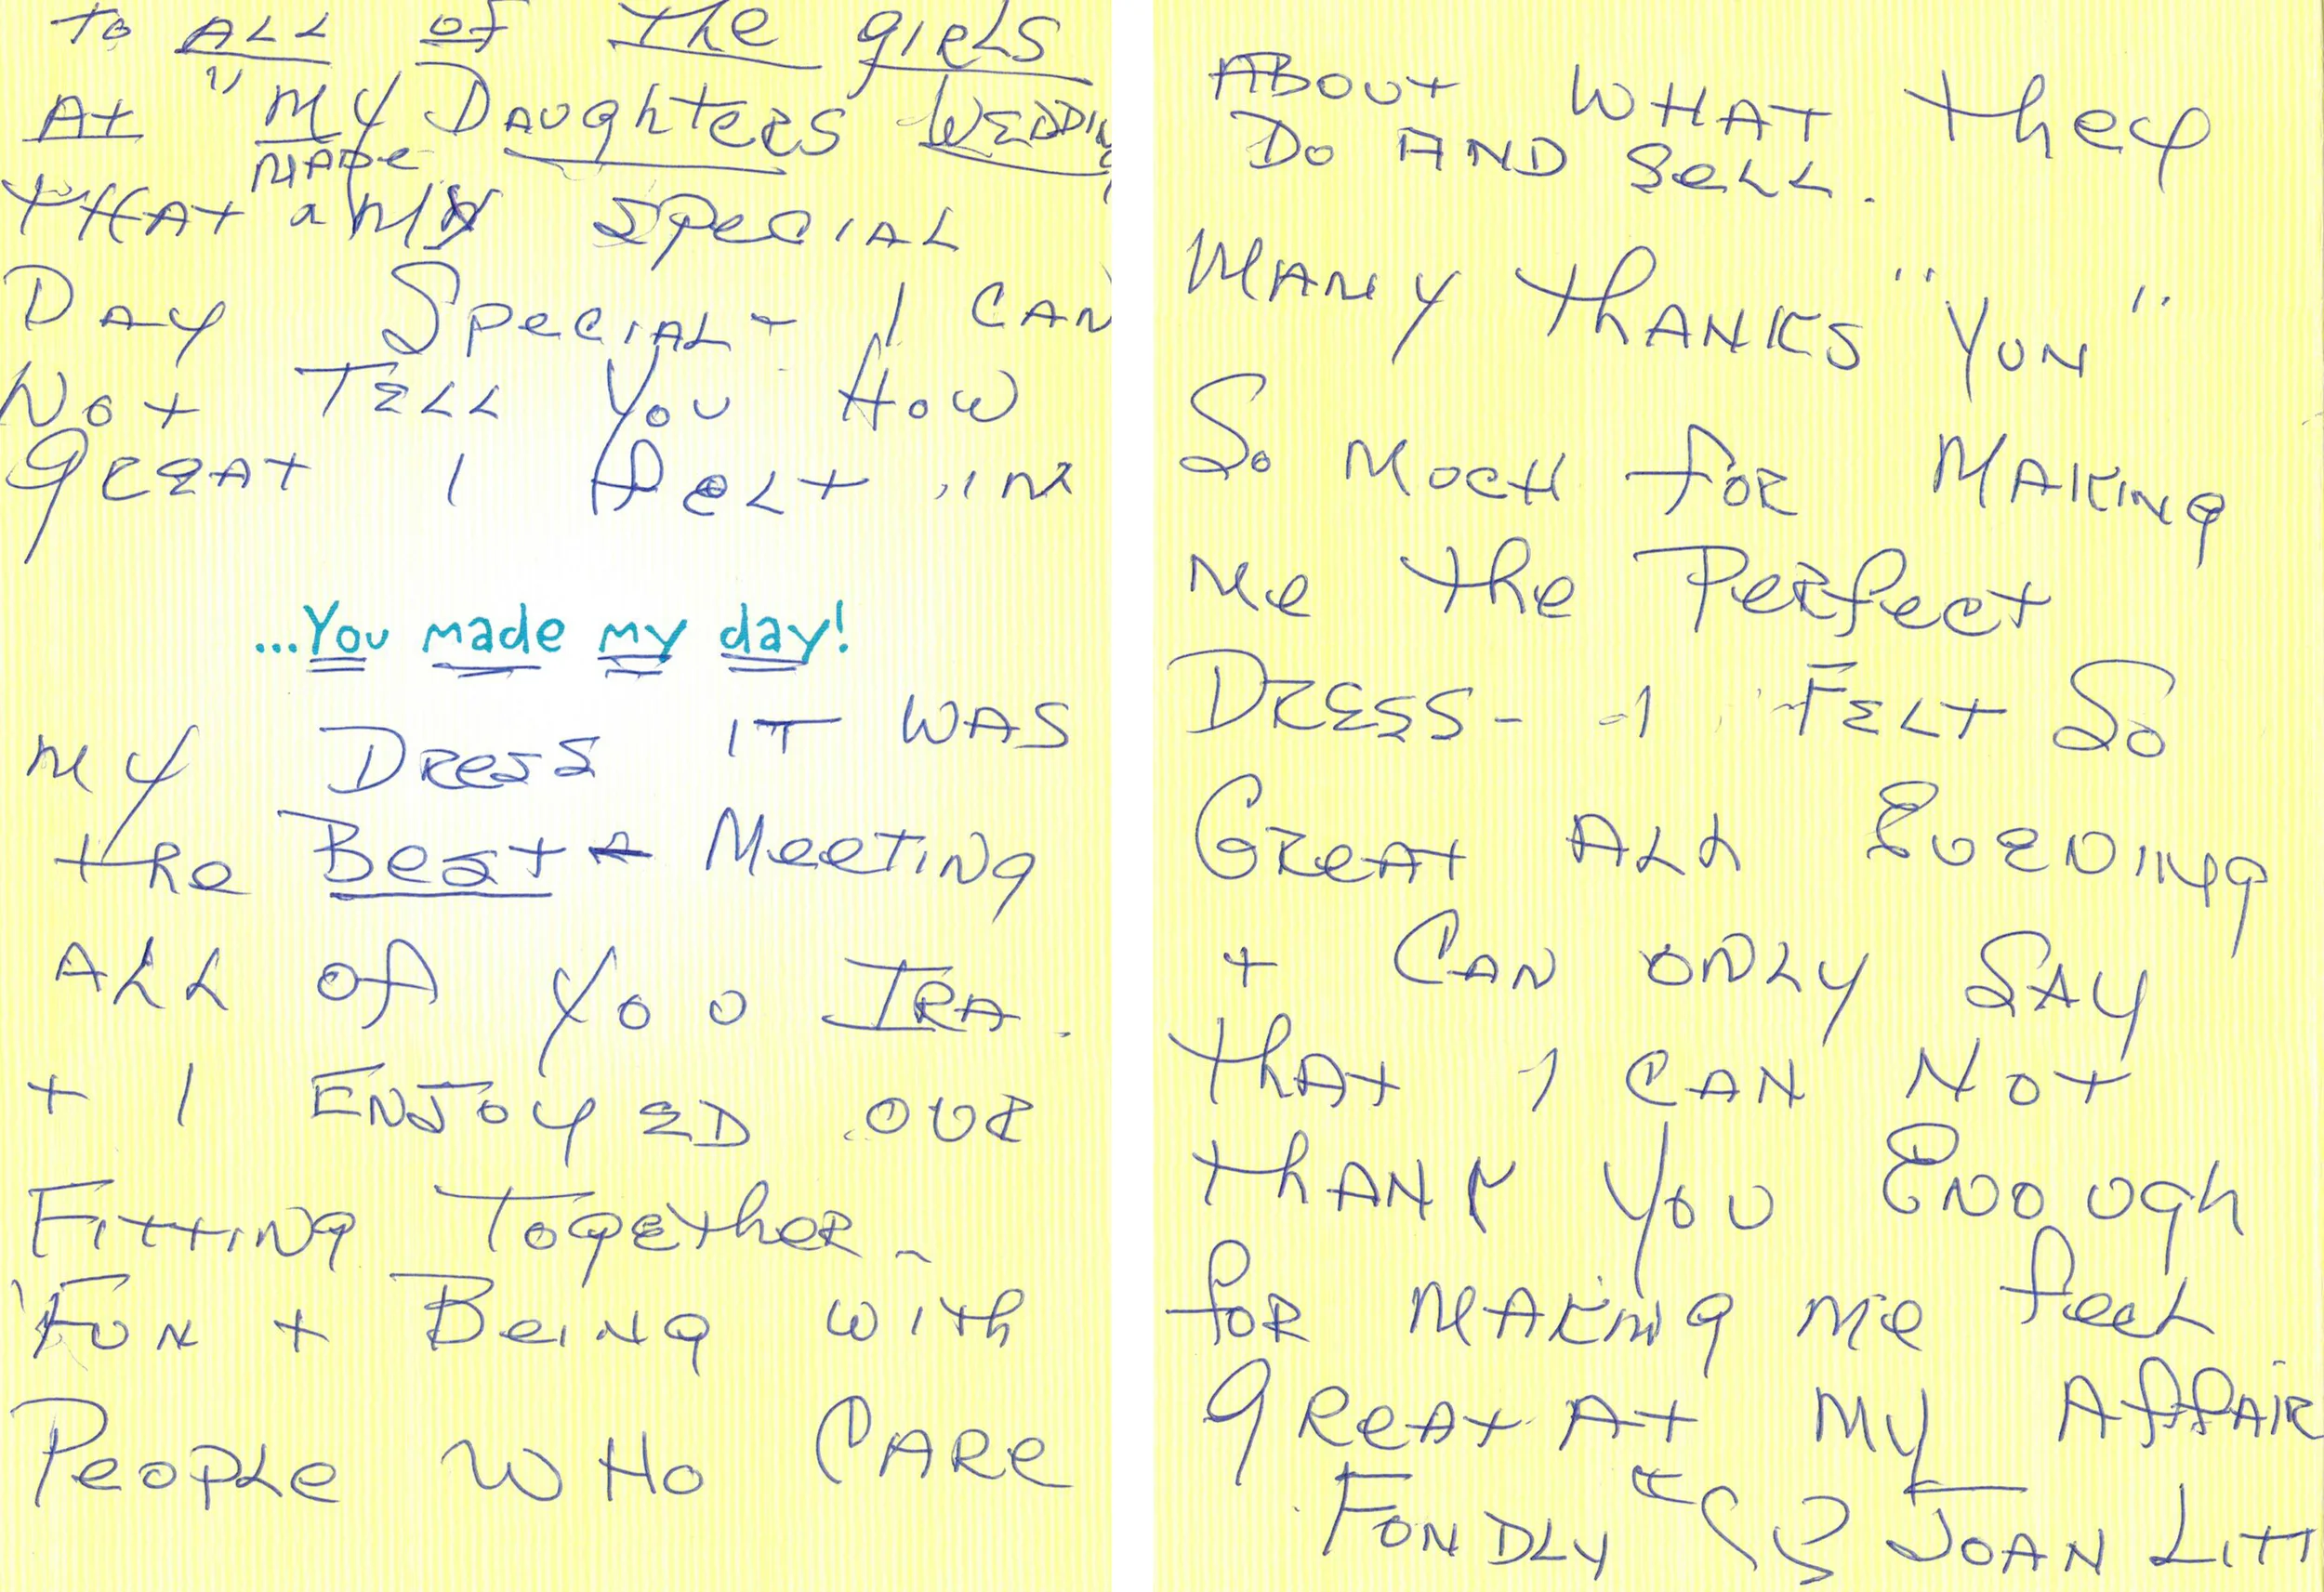 To ALL of The girls
At "MY Daughters WEDDIN
MADE
THAT a MY SPecIAL
DAY SPecIAL - I CAN
NOT TELL YOU HOW
great I felt in
...You made my day!
MY Dress IT WAS
the Best + Meeting
ALL of You IRA.
+ I ENJOYED OUR
FITTING TOGETHER -
FUN + Being with
People WHO CARe
ABOUT WHAT They
DO AND Sell.
MANY ThANKS "YUN"
So MUCH for MAKINg
Me The Perfect
DRESS - I FELT So
Great ALL Evening
+ CAN ONLY SAY
That I CAN NOT
ThANK You Enough
for MAKINg Me feel
gReat AT MY AffAIR
FONDLY JOAN LITT